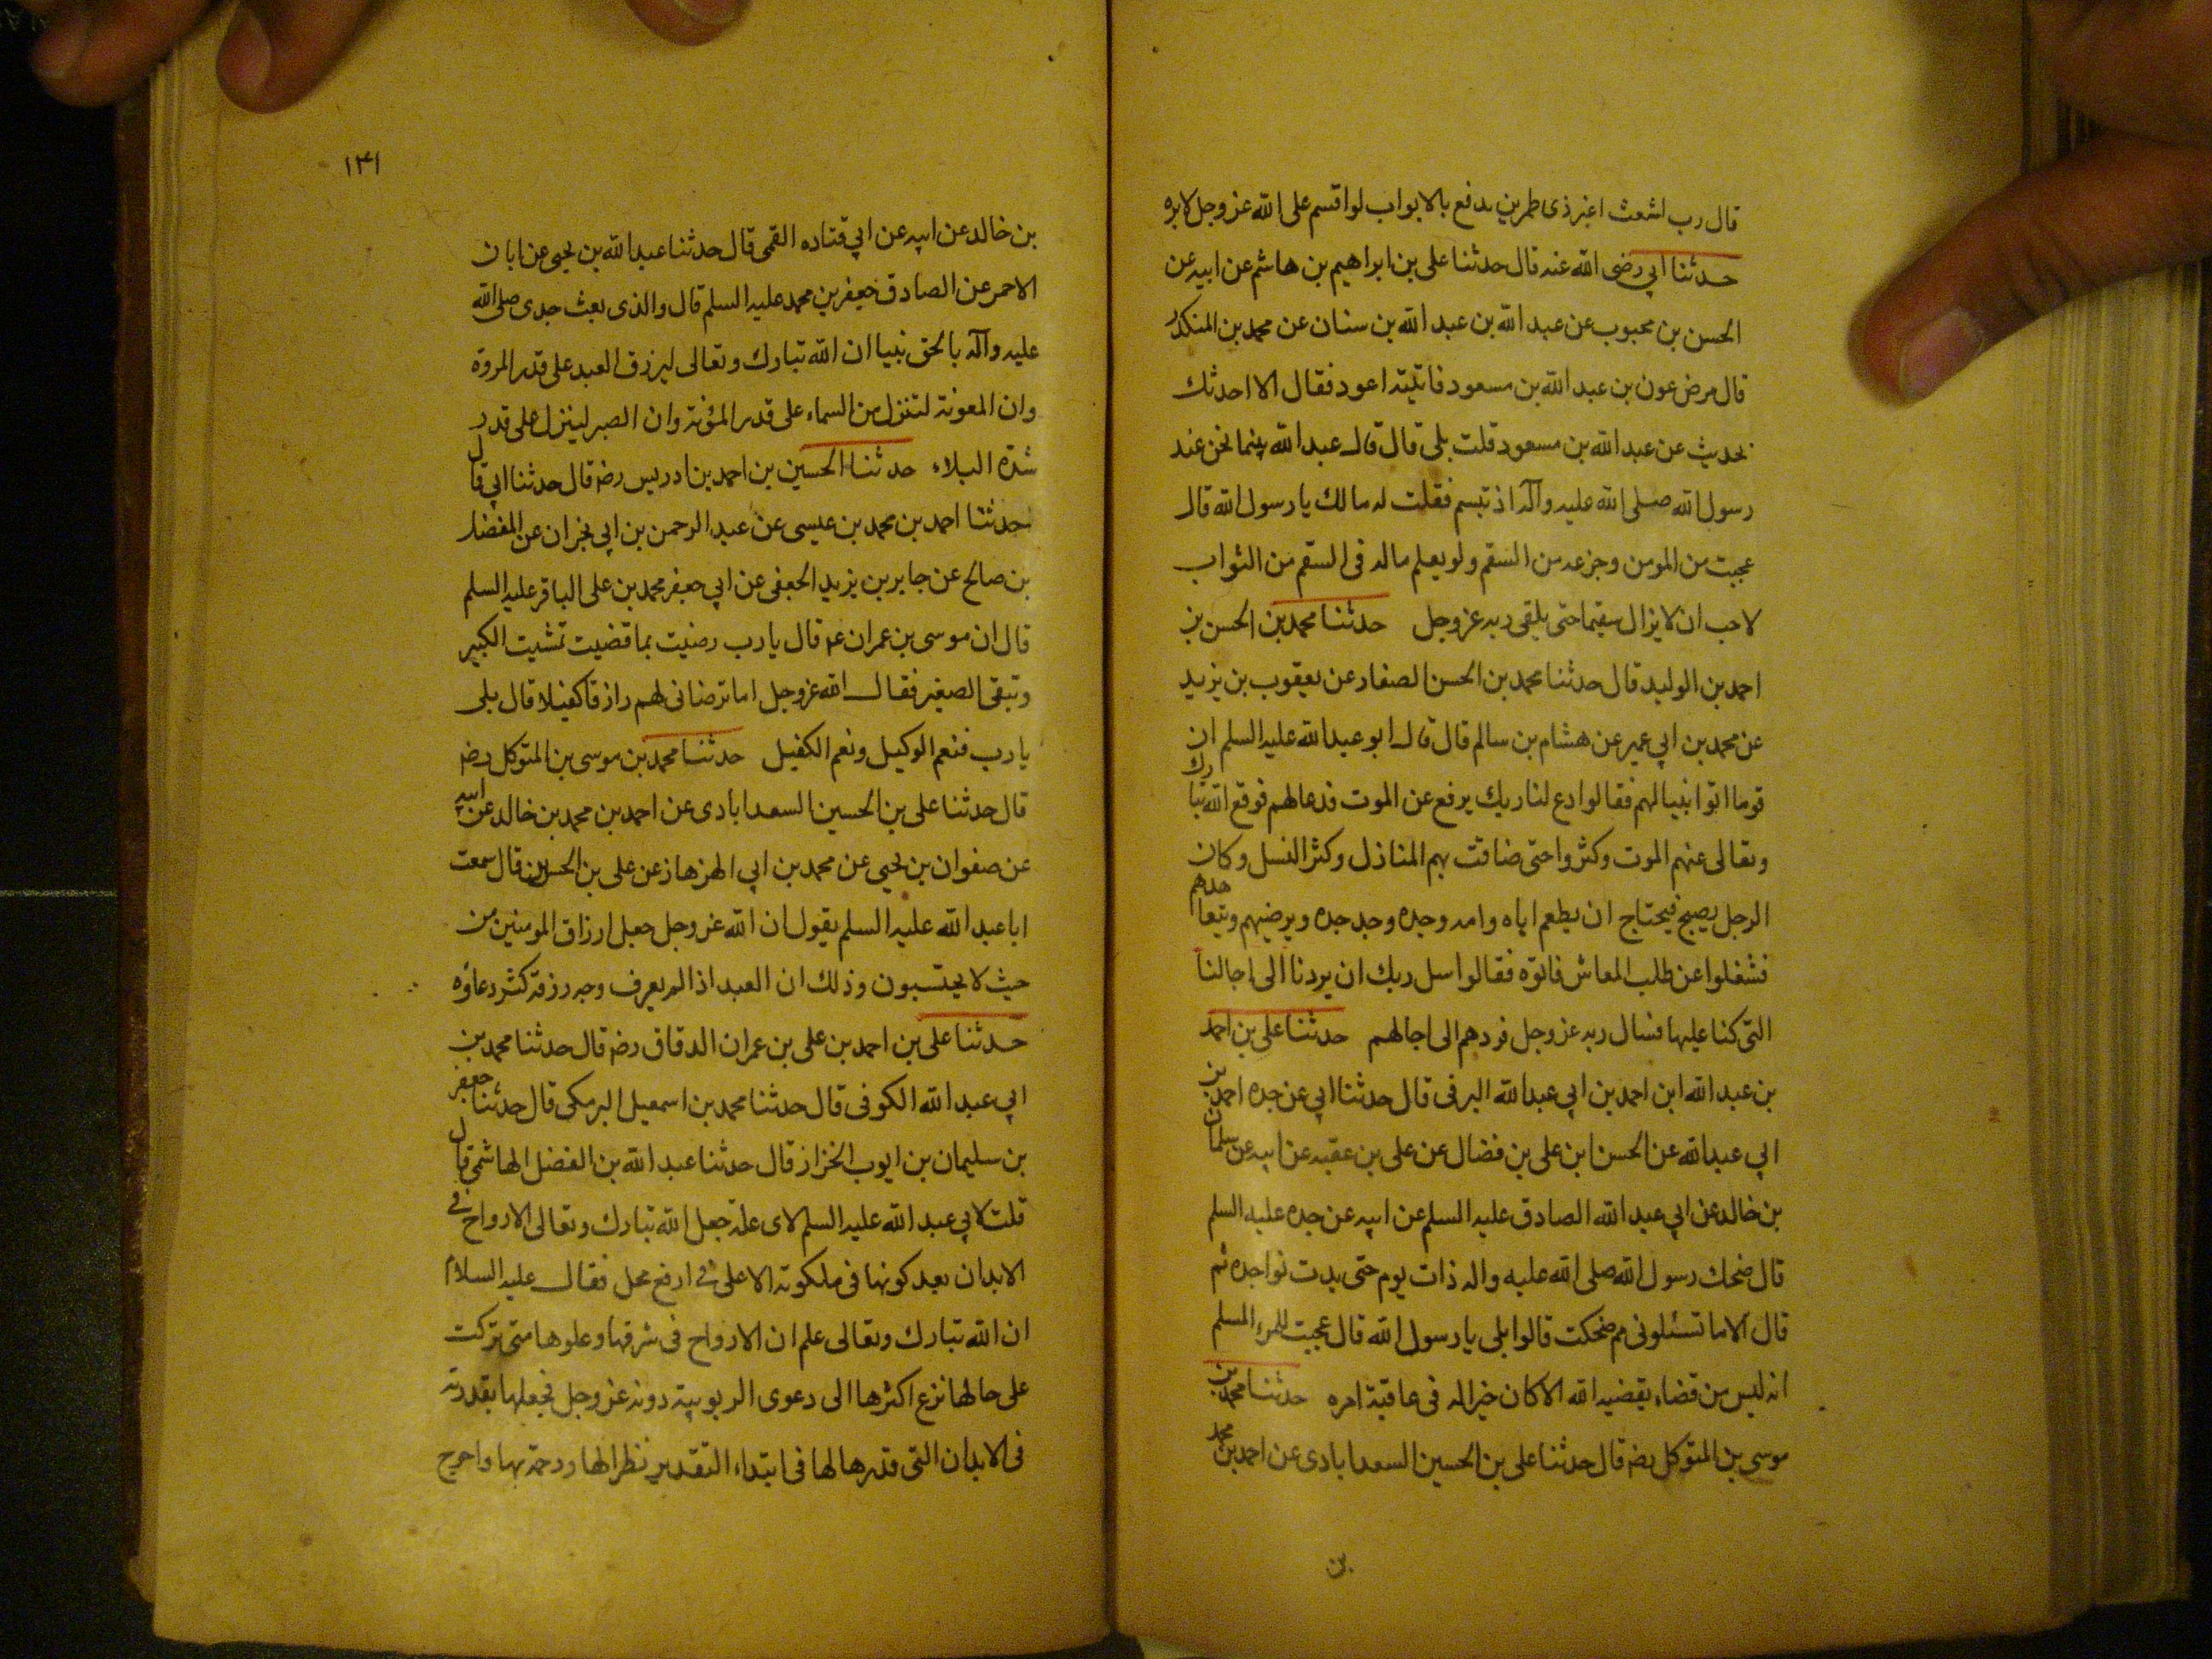 قال رب اشعث اغبر ذى طمرين يدفع بالابواب لو اقسم على الله عز وجل لابره
حدثنا ابي رضى الله عنه قال حدثنا على بن ابراهيم بن هاشم عن ابيه عن
الحسن بن محبوب عن عبد الله بن عبد الله بن سنان عن محمد بن المنكدر
قال مرض عون بن عبد الله بن مسعود فاتيته اعود فقال الا احدثك
بحديث عن عبد الله بن مسعود قلت بلى قال قال عبد الله بينما نحن عند
رسول الله صلى الله عليه وآله اذ تبسم فقلت له مالك يا رسول الله قال
عجبت من المومن وجزعه من السقم ولو يعلم ماله فى السقم من الثواب
لاحب ان لا يزال سقيما حتى يلقى ربه عز وجل حدثنا محمد بن الحسن بن
احمد بن الوليد قال حدثنا محمد بن الحسن الصفار عن يعقوب بن يزيد
عن محمد بن ابي عمير عن هشام بن سالم قال قال ابو عبد الله عليه السلم ان
قوما اتوا نبيا لهم فقالوا ادع لنا ربك يرفع عن الموت فدعا لهم فوقع الله تبارك
وتعالى عنهم الموت وكثروا حتى ضاقت بهم المنازل وكثر النسل وكان
الرجل يصبح فيحتاج ان يطعم اياه وامه وجده وجد جده ويرضيهم ويتعاهدهم
فشغلوا عن طلب المعاش فاتوه فقالوا سل ربك ان يردنا الى اجالنا
التى كنا عليها فسال ربه عز وجل فردهم الى اجالهم حدثنا على بن احمد
بن عبد الله ابن احمد بن ابي عبد الله البرقى قال حدثنا ابي عن جده احمد بن
ابي عبد الله عن الحسن ابن على بن فضال عن على بن عقبه عن ابيه عن سلمان
بن خالد عن ابي عبد الله الصادق عليه السلم عن ابيه عن جده عليه السلم
قال ضحك رسول الله صلى الله عليه واله ذات يوم حتى بدت نواجده ثم
قال الا ما تسئلونى مم ضحكت قالوا بلى يا رسول الله قال عجبت للمرء المسلم
انه ليس من قضاء يقضيه الله الا كان خيرا له فى عاقبة امره حدثنا محمد بن
موسى بن المتوكل رضه قال حدثنا على بن الحسين السعدابادى عن احمد بن محمد
بن
١٤١
بن خالد عن ابيه عن ابي قتاده القمى قال حدثنا عبد الله بن يحيى عن ابان
الاحمر عن الصادق جعفر بن محمد عليه السلم قال والذى بعث جدى صلى الله
عليه وآله بالحق نبيا ان الله تبارك وتعالى ليرزق العبد على قدر المروة
وان المعونة لتنزل من السماء على قدر المؤنة وان الصبر لينزل على قدر
شدة البلاء حدثنا الحسين بن احمد بن ادريس رضه قال حدثنا ابي قال
حدثنا احمد بن محمد بن عيسى عن عبد الرحمن بن ابي نجران عن المفضل
بن صالح عن جابر بن يزيد الجعفى عن ابي جعفر محمد بن على الباقر عليه السلم
قال ان موسى بن عمران عه قال يا رب رضيت بما قضيت تشيت الكبير
وتبقى الصغير فقال الله عز وجل اما ترضانى لهم رازقا كفيلا قال بلى
يا رب فنعم الوكيل ونعم الكفيل حدثنا محمد بن موسى بن المتوكل رضه
قال حدثنا على بن الحسين السعدابادى عن احمد بن محمد بن خالد عن ابيه
عن صفوان بن يحيى عن محمد بن ابي الهزهاز عن على بن الحسين قال سمعت
ابا عبد الله عليه السلم يقول ان الله عز وجل جعل ارزاق المومنين من
حيث لا يحتسبون وذلك ان العبد اذا لم يعرف وجه رزقه كثر دعاؤه
حدثنا على بن احمد بن على بن عمران الدقاق رضه قال حدثنا محمد بن
ابي عبد الله الكوفى قال حدثنا محمد بن اسمعيل البرمكى قال حدثنا جعفر
بن سليمان بن ايوب الخزاز قال حدثنا عبد الله بن الفضل الهاشمى قال
قلت لابي عبد الله عليه السلم لاى علة جعل الله تبارك وتعالى الارواح فى
الابدان بعد كونها فى ملكوته الاعلى فى ارفع محل فقال عليه السلام
ان الله تبارك وتعالى علم ان الارواح فى شرفها وعلوها متى تركت
على حالها نزع اكثرها الى دعوى الربوبية دونه عز وجل فجعلها بقدرته
فى الابدان التى قدرها لها فى ابتداء التقدير نظرا لها ورحمة بها واحوج